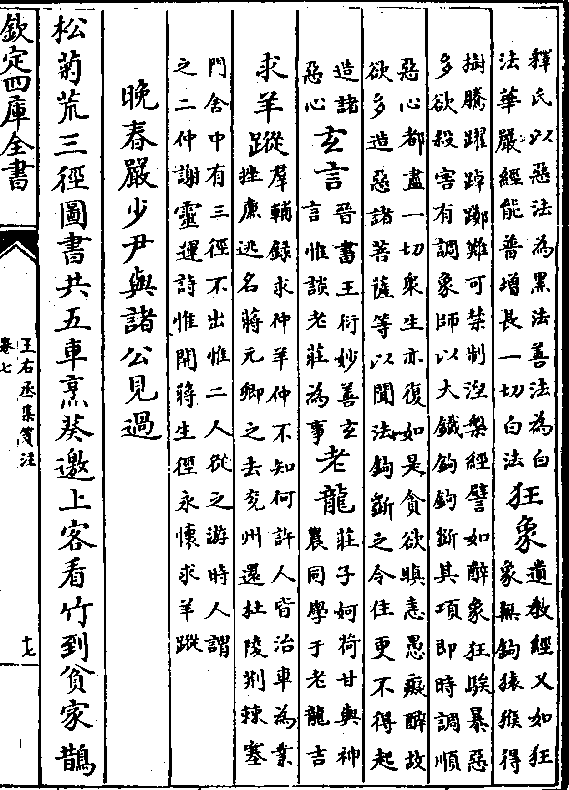 釋氏以惡法為黑法善法為白
法華嚴經能普增長一切白法
狂象
遺教經又如狂
象無鈎猿猴得
樹騰躍踔躑難可禁制涅槃經譬如醉象狂騃暴惡
多欲殺害有調象師以大鐵鈎鈎斷其項即時調順
惡心都盡一切衆生亦復如是貪欲瞋恚愚癡醉故
欲多造惡諸菩薩等以聞法鈎斷之令住更不得起
造諸
惡心
玄言
晉書王衍妙善玄
言惟談老莊為事
老龍
莊子妸荷甘與神
農同學于老龍吉
求羊蹤
羣輔錄求仲羊仲不知何許人皆治車為業
挫廉逃名蔣元卿之去兗州還杜陵荆棘塞
門舍中有三徑不出惟二人從之游時人謂
之二仲謝靈運詩惟開蔣生徑永懷求羊蹤
晚春嚴少尹與諸公見過
松菊荒三徑圖書共五車烹葵邀上客看竹到貧家鵲
欽定四庫全書
王右丞集箋注
卷七
十七